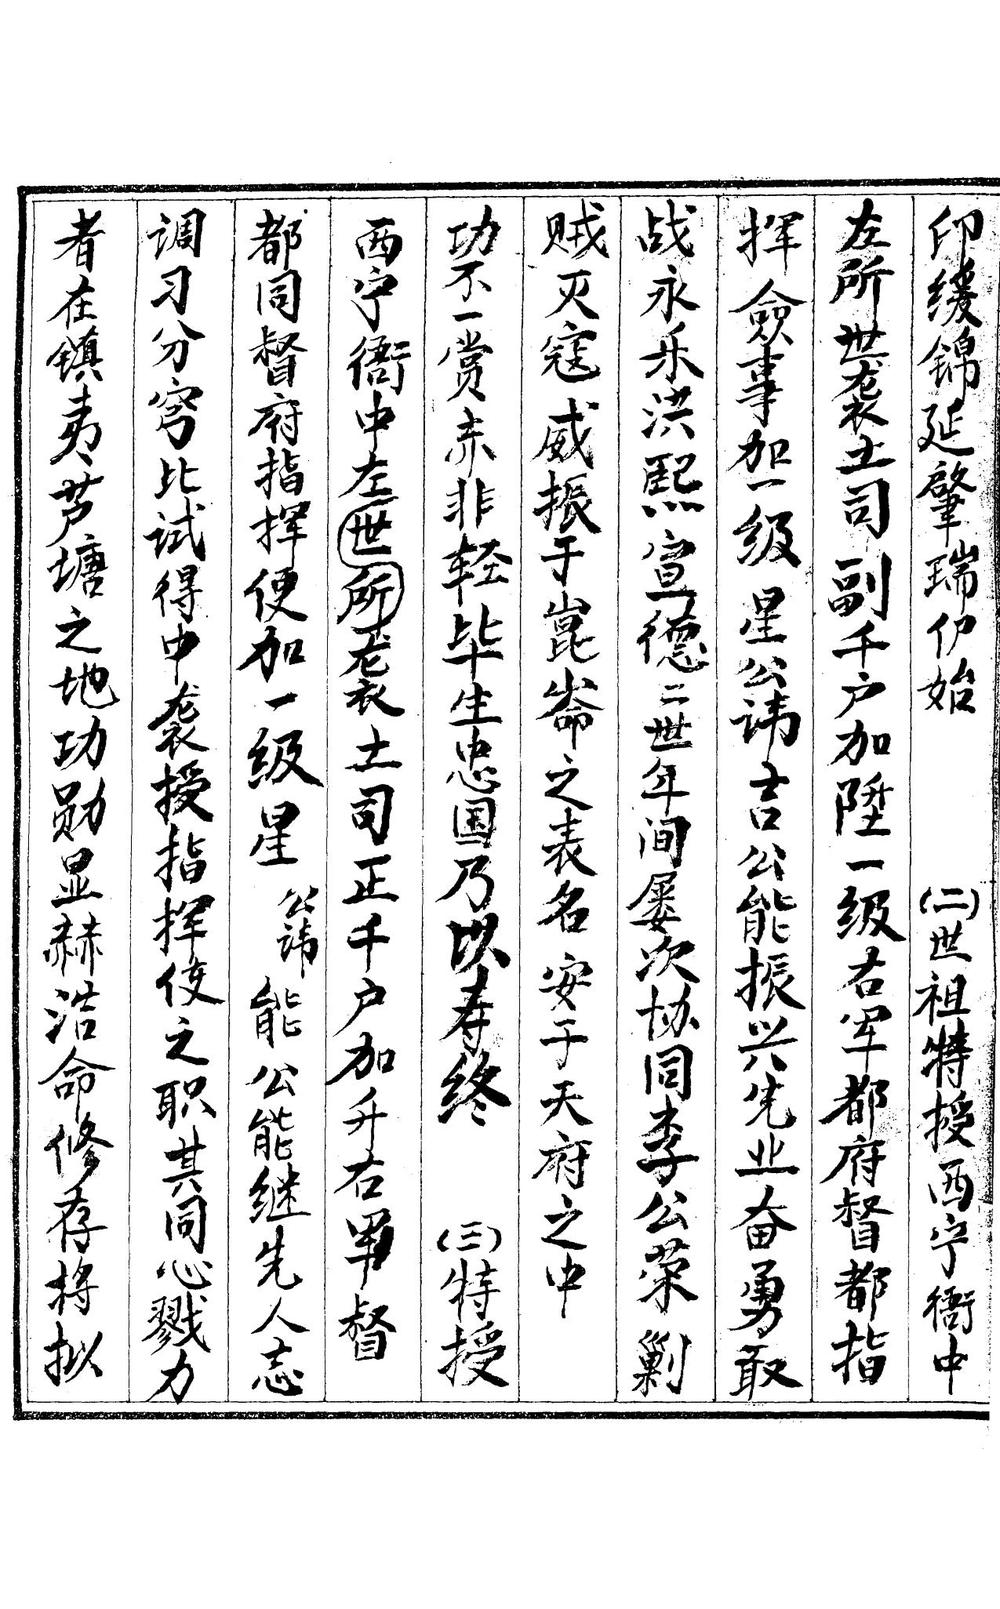 印缓锦延肇瑞伊始 (二)世祖特授西宁衙中
左所世袭土司副千户加陞一级右军都府督都指
挥佥事加一级星公讳吉公能振兴先业奋勇敢
战永乐洪熙宣德二世年间屡次协同李公荣剿
贼灭寇威振于崑崙之表名安于天府之中
功不一赏亦非轻毕生忠国乃以寿终 (三)特授
西宁衙中左世所袭土司正千户加升右军督
都同督府指挥使加一级星公讳能公能继先人志
调习分穹比试得中袭授指挥使之职其同心戮力
者在镇夷芦塘之地功勋显赫浩命修存将拟